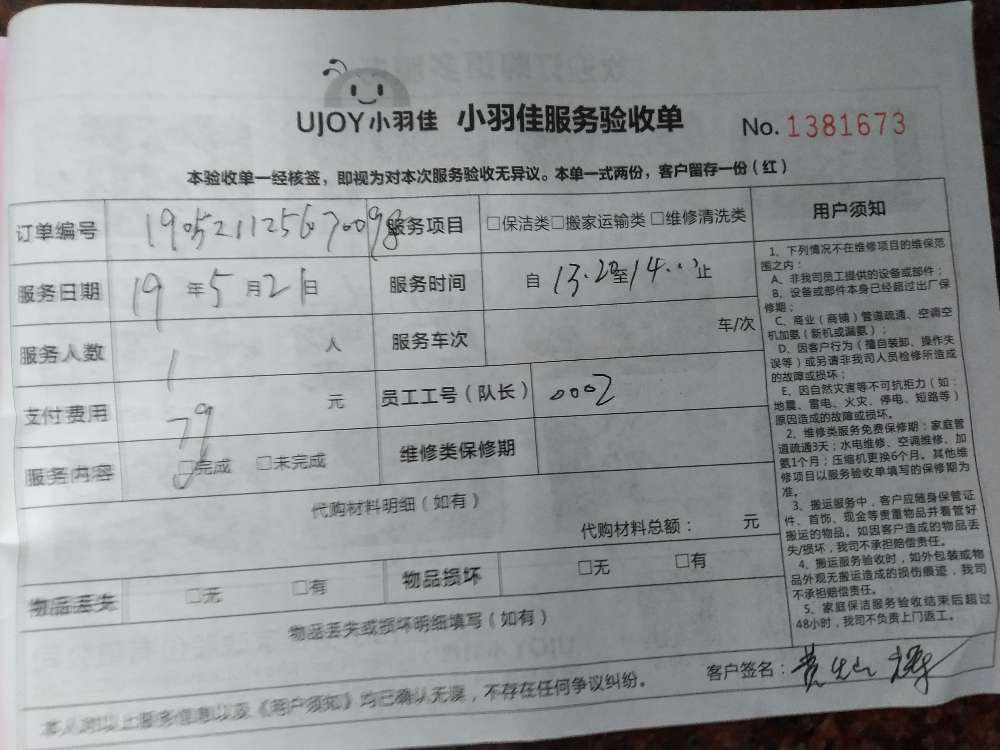 UJOY小羽佳 小羽佳服务验收单 No. 1381673
本验收单一经核签，即视为对本次服务验收无异议。本单一式两份，客户留存一份（红）
订单编号 190521125670098 服务项目 □保洁类□搬家运输类 □维修清洗类
服务日期 19 年 5 月 21 日 服务时间 自 13.20 至 14. 止
服务人数 1 人 服务车次 车/次
支付费用 79 元 员工工号（队长） 0002
服务内容 □完成 □未完成 维修类保修期
代购材料明细（如有）
代购材料总额： 元
物品丢失 □无 □有 物品损坏 □无 □有
物品丢失或损坏明细填写（如有）
用户须知
1、下列情况不在维修项目的维保范
围之内：
A、非我司员工提供的设备或部件；
B、设备或部件本身已经超过出厂保
修期；
C、商业（商铺）管道疏通、空调空
机加氨（新机或漏氨）；
D、因客户行为（擅自装卸、操作失
误等）或另请非我司人员检修所造成
的故障或损坏；
E、因自然灾害等不可抗拒力（如：
地震、雷电、火灾、停电、短路等）
原因造成的故障或损坏。
2、维修类服务免费保修期：家庭管
道疏通3天；水电维修、空调维修、加
氨1个月；压缩机更换6个月。其他维
修项目以服务验收单填写的保修期为
准。
3、搬运服务中，客户应随身保管证
件、首饰、现金等贵重物品并看管好
搬运的物品。如因客户造成的物品丢
失/损坏，我司不承担赔偿责任。
4、搬运服务验收时，如外包装或物
品外观无搬运造成的损伤痕迹，我司
不承担赔偿责任。
5、家庭保洁服务验收结束后超过
48小时，我司不负责上门返工。
本人对以上服务信息以及《用户须知》均已确认无误，不存在任何争议纠纷。 客户签名：